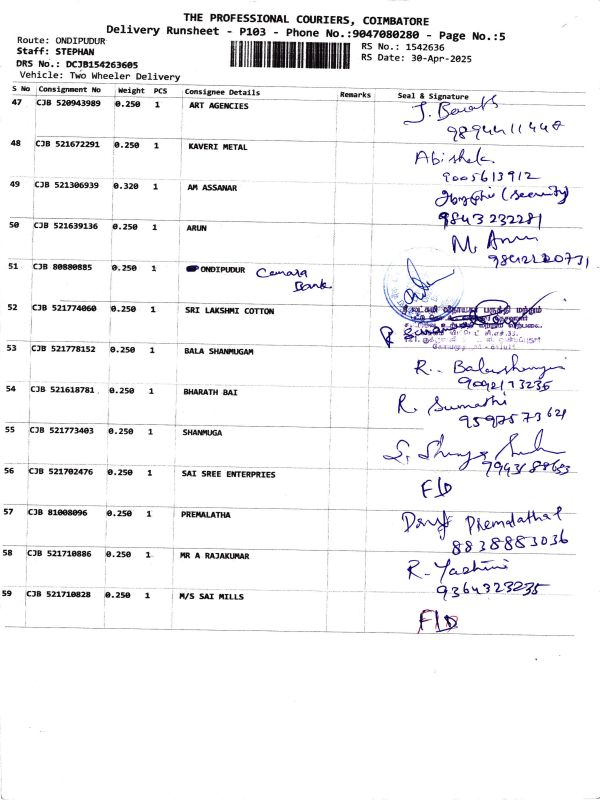 THE PROFESSIONAL COURIERS, COIMBATORE
Delivery Runsheet - P103 - Phone No.:9047080280 - Page No.:5
Route: ONDIPUDUR
RS No.: 1542636
Staff: STEPHAN
RS Date: 30-Apr-2025
DRS No.: DCJB154263605
Vehicle: Two Wheeler Delivery
S No Consignment No Weight PCS Consignee Details Remarks Seal & Signature
47 CJB 520943989 0.250 1 ART AGENCIES
48 CJB 521672291 0.250 1 KAVERI METAL Abishek
9005613912
49 CJB 521306939 0.320 1 AM ASSANAR (security)
9843232281
50 CJB 521639136 0.250 1 ARUN M. Arun
51 CJB 80880885 0.250 1 ONDIPUDUR Canara
Bank
52 CJB 521774060 0.250 1 SRI LAKSHMI COTTON
53 CJB 521778152 0.250 1 BALA SHANMUGAM R.
54 CJB 521618781 0.250 1 BHARATH BAI R. Sumathi
55 CJB 521773403 0.250 1 SHANMUGA
56 CJB 521702476 0.250 1 SAI SREE ENTERPRIES
57 CJB 81008096 0.250 1 PREMALATHA
8838883036
58 CJB 521710886 0.250 1 MR A RAJAKUMAR R. Yashini
9364323235
59 CJB 521710828 0.250 1 M/S SAI MILLS